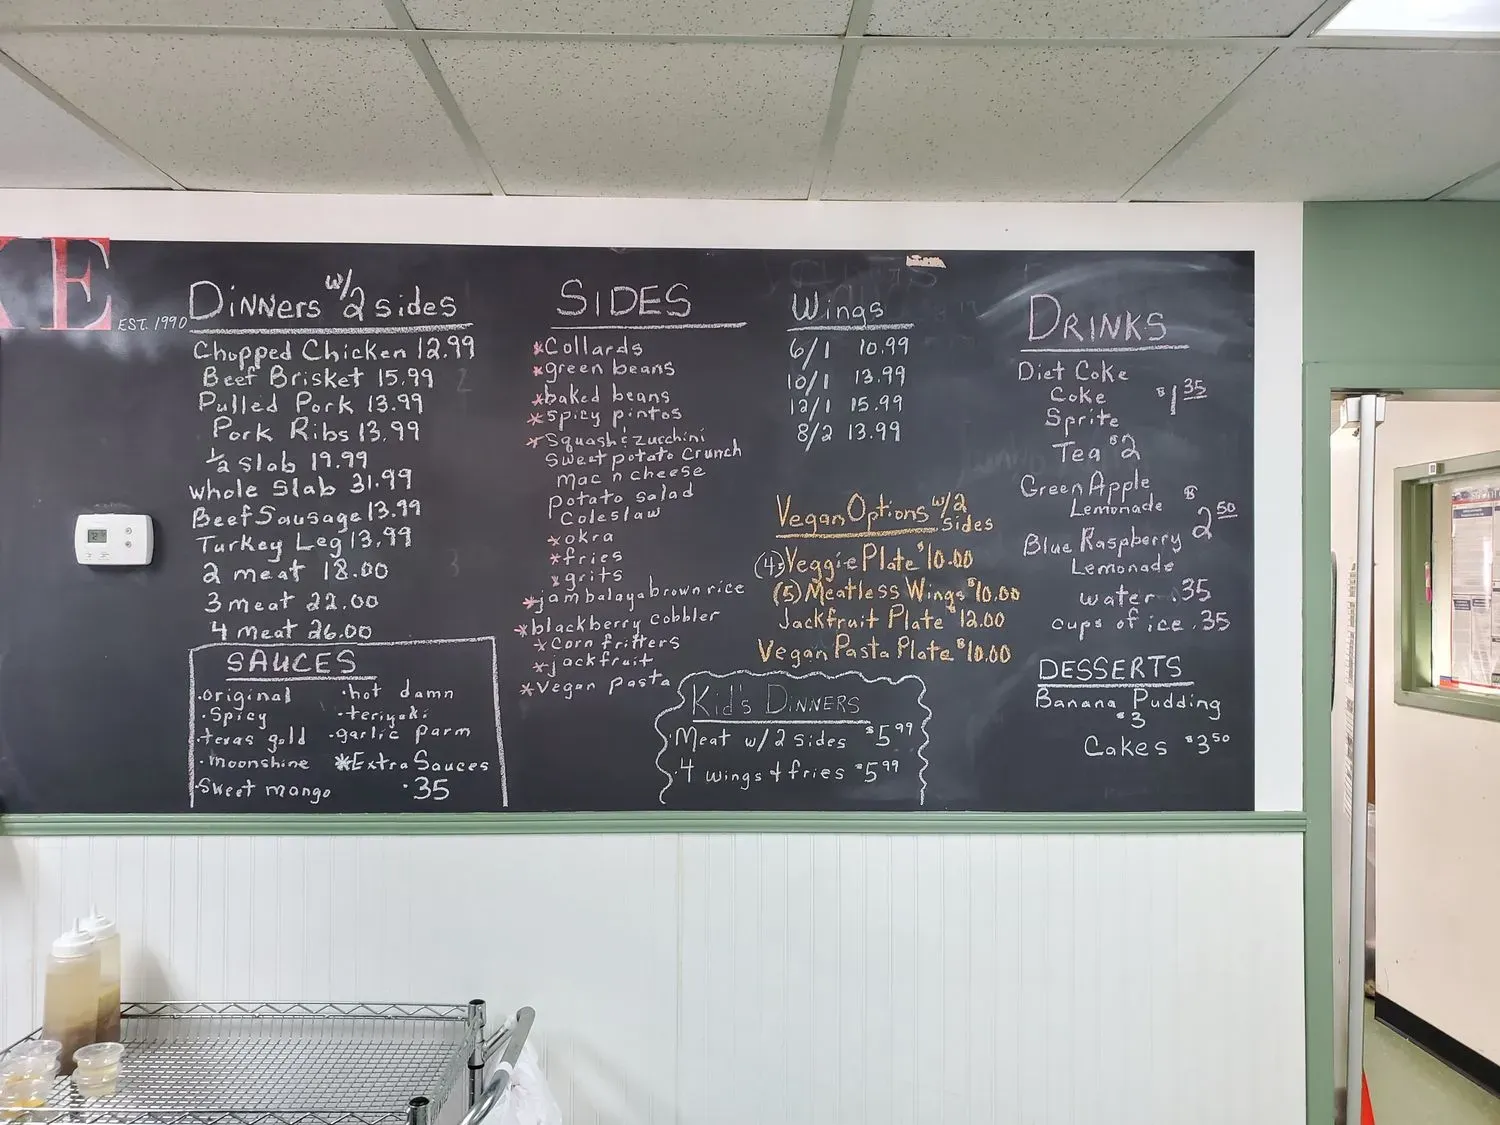 KE
EST. 1990
Dinners w/ 2 sides
Chopped Chicken 12.99
Beef Brisket 15.99
Pulled Pork 13.99
Pork Ribs 13.99
½ slab 19.99
whole slab 31.99
Beef Sausage 13.99
Turkey Leg 13.99
2 meat 18.00
3 meat 22.00
4 meat 26.00
SAUCES
·original
·Spicy
·texas gold
·moonshine
·Sweet mango
·hot damn
·teriyaki
·garlic parm
*Extra Sauces
.35
SIDES
*Collards
*green beans
*baked beans
*spicy pintos
*Squash & zucchini
Sweet potato Crunch
mac n cheese
potato salad
Coleslaw
*okra
*fries
*grits
*jambalaya brown rice
*blackberry cobbler
*Corn fritters
*jackfruit
*Vegan pasta
Wings
6/1 10.99
10/1 13.99
12/1 15.99
8/2 13.99
Vegan Options w/2 sides
(4) Veggie Plate $10.00
(5) Meatless Wings $10.00
Jackfruit Plate $12.00
Vegan Pasta Plate $10.00
Kid's Dinners
·Meat w/ 2 sides $5.99
·4 wings & fries $5.99
DRINKS
Diet Coke
Coke $1.35
Sprite
Tea $2
Green Apple
Lemonade $2.50
Blue Raspberry
Lemonade
water .35
cups of ice .35
DESSERTS
Banana Pudding
$3
Cakes $3.50